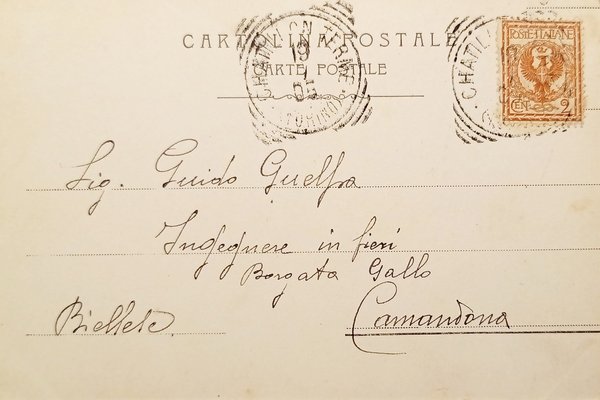 CARTOLINA POSTALE
CARTE POSTALE
CHATILLON TERME
19
7
05
(TORINO)
CHATILLON
POSTE ITALIANE
CEN. 2
Sig. Guido Guelpa
Ingegnere in fieri
Borgata Gallo
Biellese
Camandona